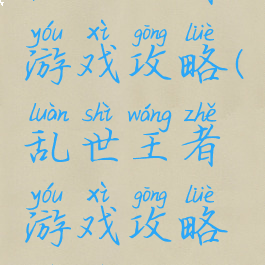 yóu xì gōng lüè
游戏攻略(
luàn shì wáng zhě
乱世王者
yóu xì gōng lüè
游戏攻略